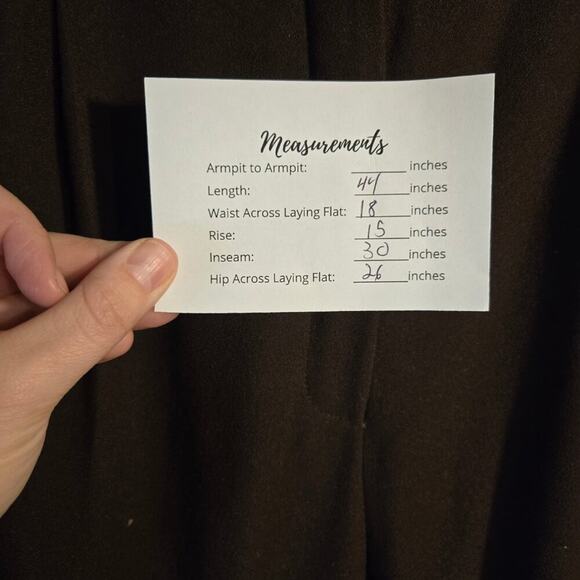 Measurements
Armpit to Armpit: ______ inches
Length: 44 inches
Waist Across Laying Flat: 18 inches
Rise: 15 inches
Inseam: 30 inches
Hip Across Laying Flat: 26 inches